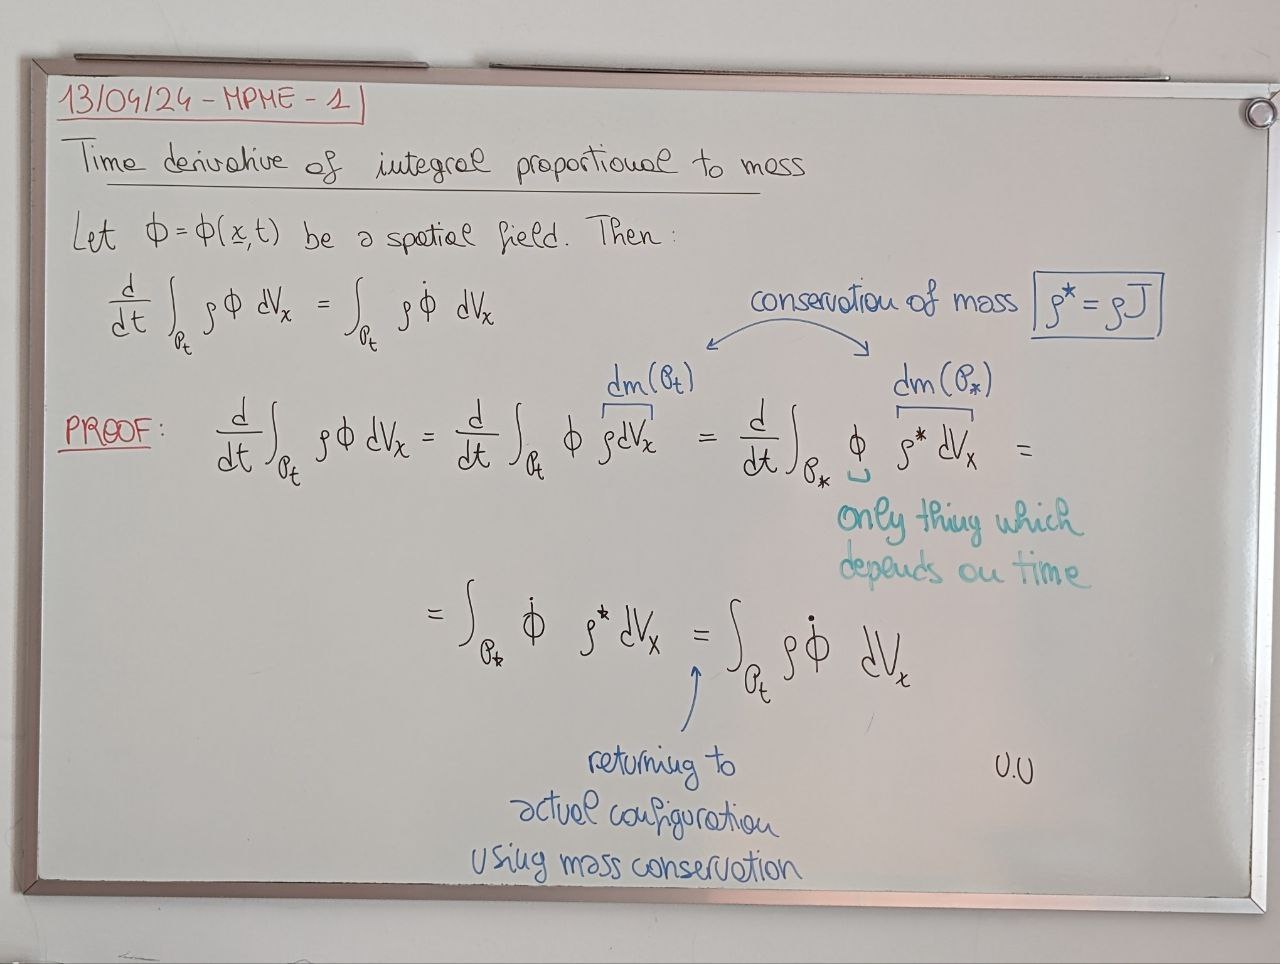 13/04/24 - MPME - 1
Time derivative of integral proportional to mass
Let ϕ = ϕ(x,t) be a spatial field. Then:
d/dt ∫_𝒫t ρϕ dVx = ∫_𝒫t ρϕ̇ dVx
conservation of mass ρ* = ρJ
dm(𝒫t) dm(𝒫*)
PROOF: d/dt ∫_𝒫t ρϕ dVx = d/dt ∫_𝒫t ϕ ρdVx = d/dt ∫_𝒫* ϕ ρ* dVx =
only thing which
depends on time
= ∫_𝒫* ϕ̇ ρ* dVx = ∫_𝒫t ρϕ̇ dVx
returning to
actual configuration
using mass conservation
U.U